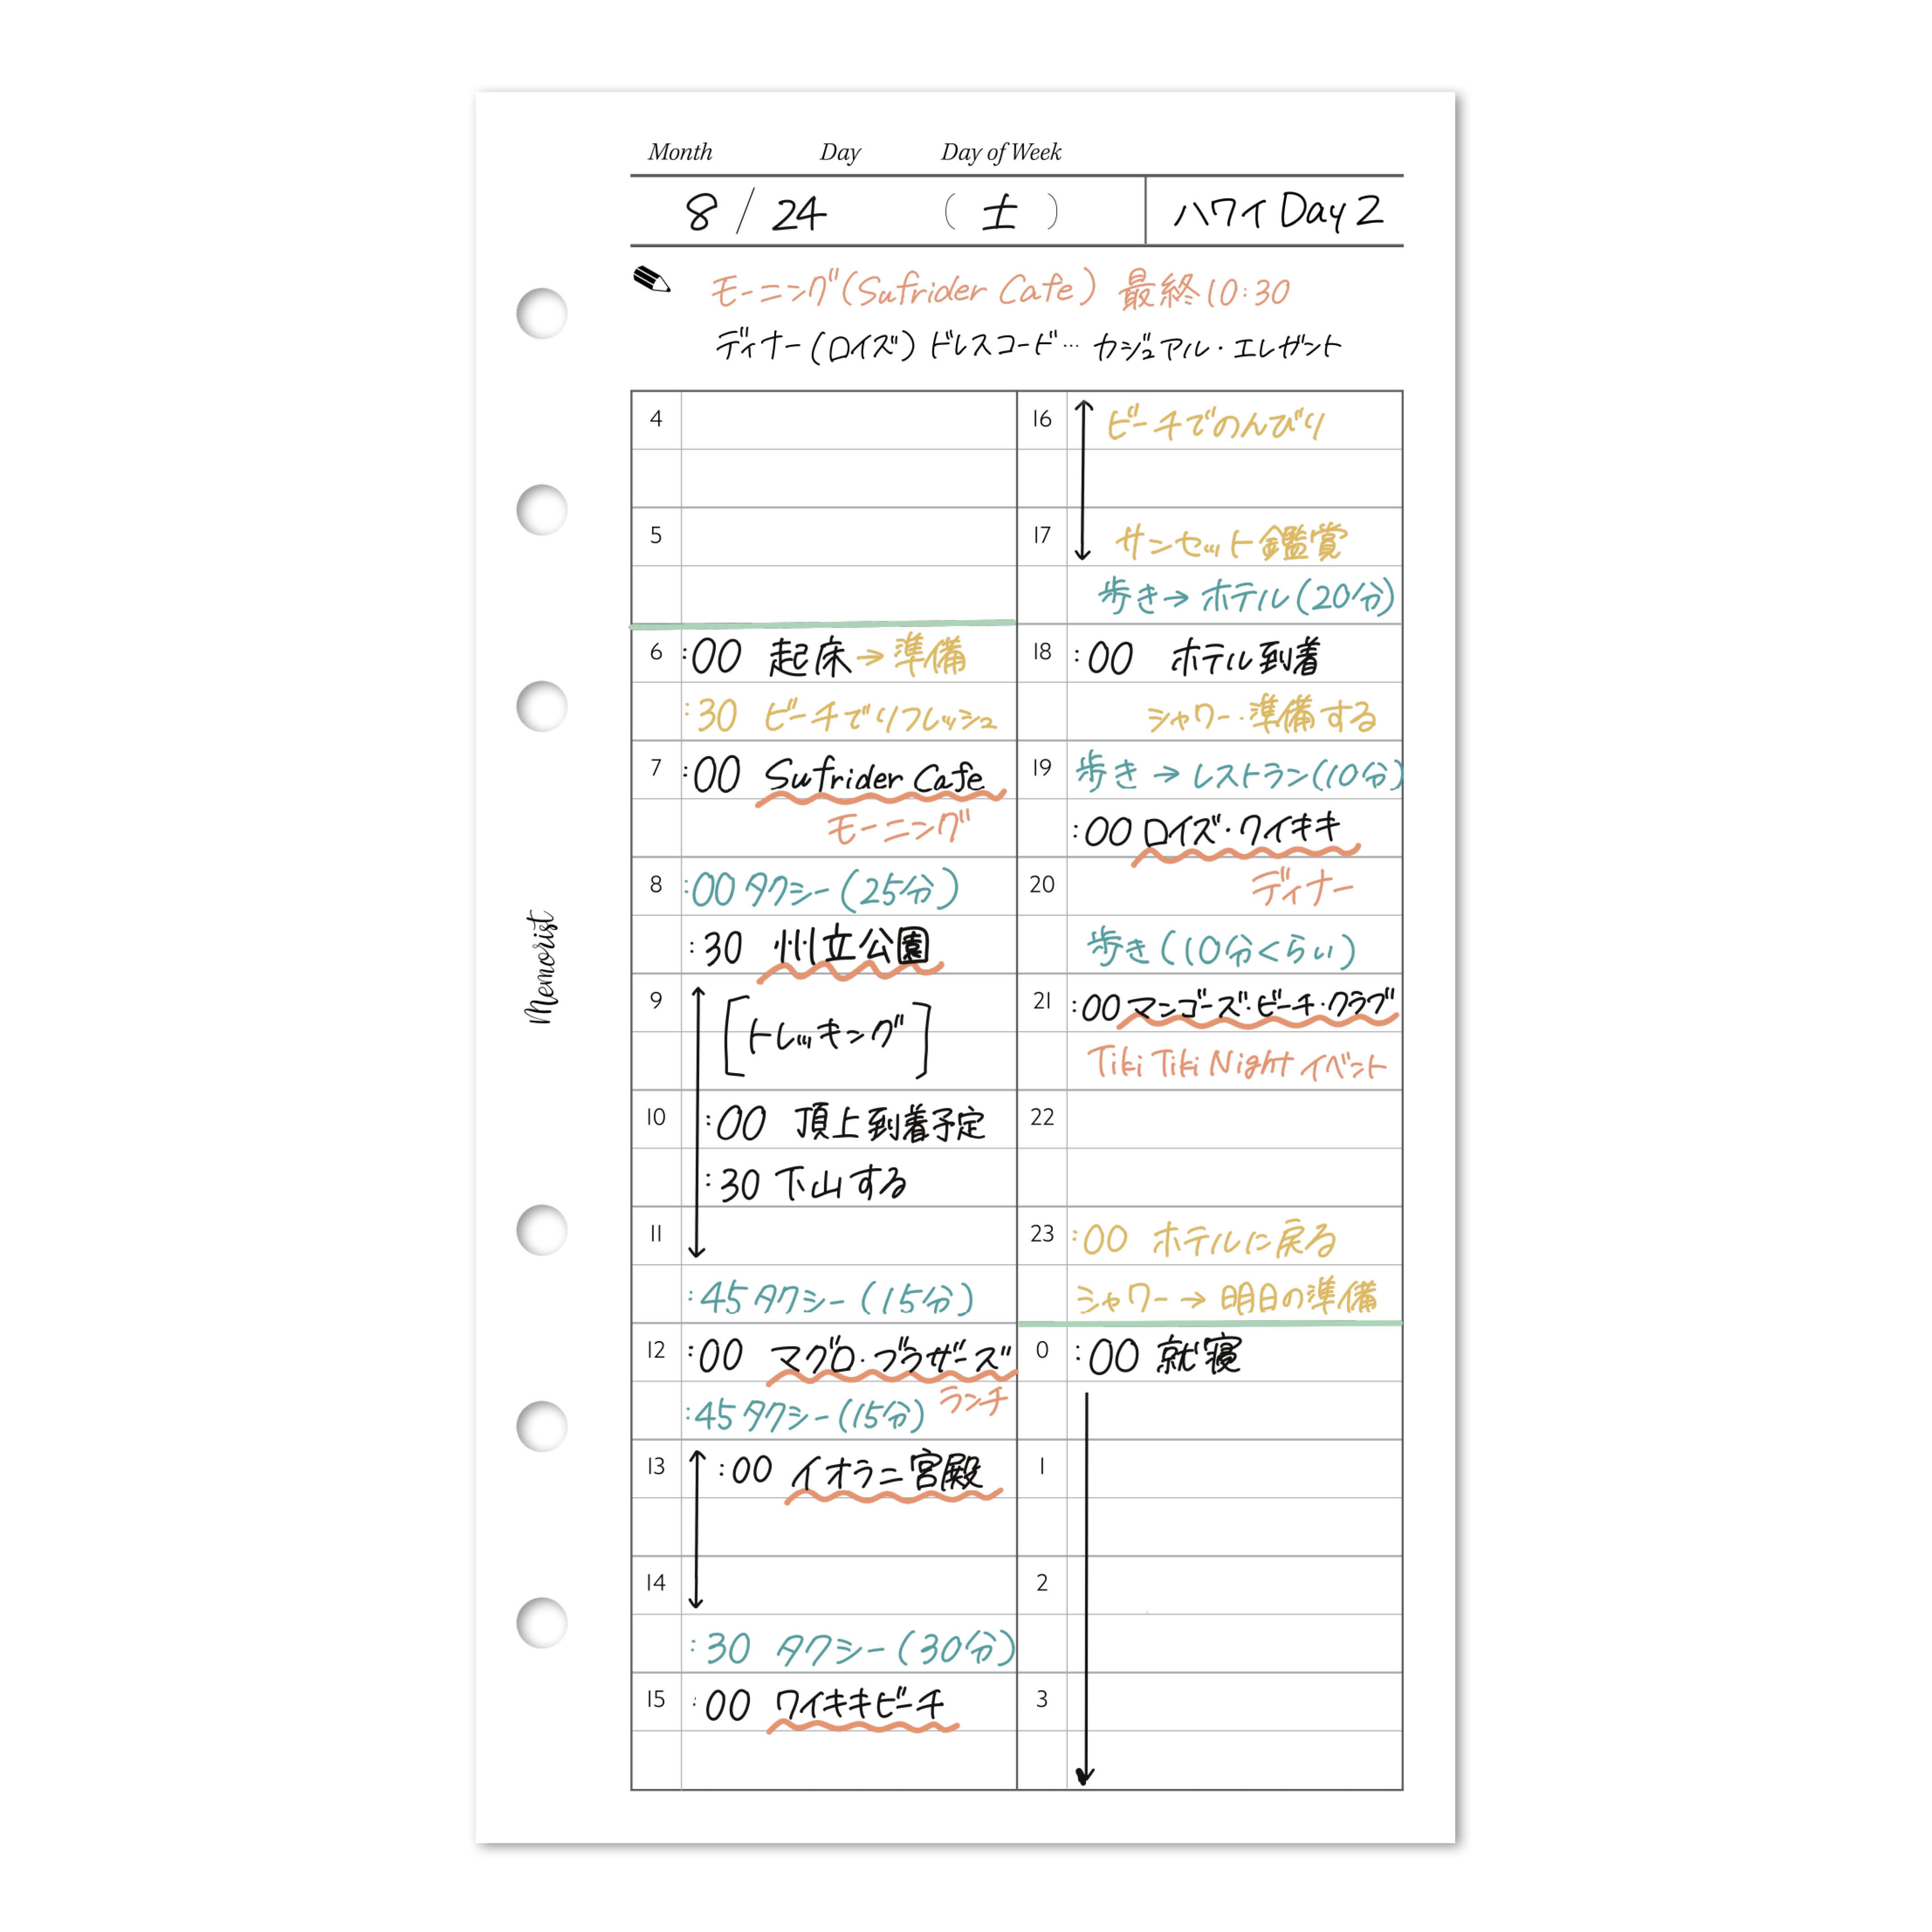 Month Day Day of Week
8 / 24 ( 土 ) ハワイ Day 2
モーニング(Sufrider Cafe) 最終10:30
ディナー(ロイズ)ドレスコード… カジュアル・エレガント
4
5
6 :00 起床→準備
:30 ビーチでリフレッシュ
7 :00 Sufrider Cafe
モーニング
8 :00 タクシー(25分)
:30 州立公園
9 [トレッキング]
10 :00 頂上到着予定
:30 下山する
11
:45 タクシー(15分)
12 :00 マグロ・ブラザーズ
:45 タクシー(15分) ランチ
13 :00 イオラニ宮殿
14
:30 タクシー(30分)
15 :00 ワイキキビーチ
16 ビーチでのんびり
17 サンセット鑑賞
歩き→ホテル(20分)
18 :00 ホテル到着
シャワー・準備する
19 歩き→レストラン(10分)
:00 ロイズ・ワイキキ
20 ディナー
歩き(10分くらい)
21 :00 マンゴーズ・ビーチ・クラブ
Tiki Tiki Night イベント
22
23 :00 ホテルに戻る
シャワー→明日の準備
0 :00 就寝
1
2
3
Memorist